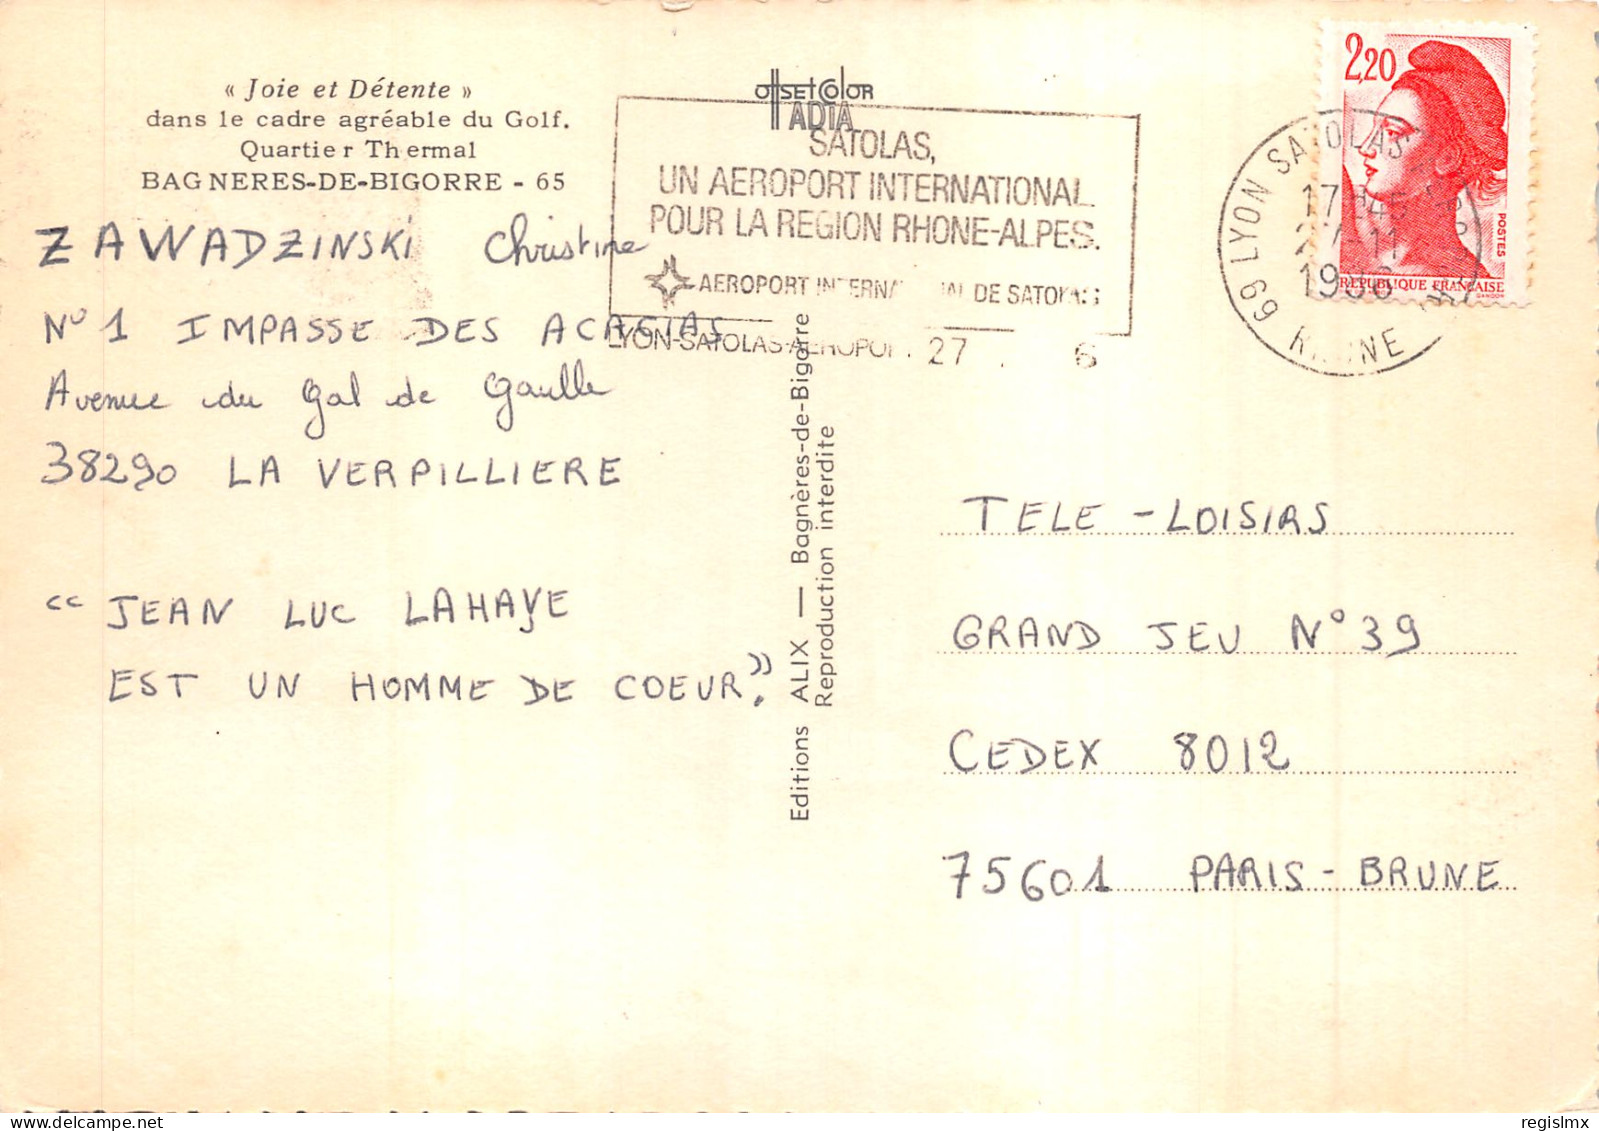 « Joie et Détente »
dans le cadre agréable du Golf.
Quartier Thermal
BAGNERES-DE-BIGORRE - 65
ZAWADZINSKI Christine
N° 1 IMPASSE DES ACACIAS
Avenue du Gal de Gaulle
38290 LA VERPILLIERE
“ JEAN LUC LAHAYE
EST UN HOMME DE COEUR.”
OffsetColor
ADIA
SATOLAS,
UN AEROPORT INTERNATIONAL
POUR LA REGION RHONE-ALPES.
AEROPORT INTERNATIONAL DE SATOLAS
LYON-SATOLAS-AEROPORT 27 6
Editions ALIX — Bagnères-de-Bigorre
Reproduction interdite
2,20
POSTES
REPUBLIQUE FRANÇAISE
GANDON
69 LYON SATOLAS
17 H45
27-11
1986
RHONE
TELE-LOISIRS
GRAND JEU N°39
CEDEX 8012
75601 PARIS-BRUNE
regislmx